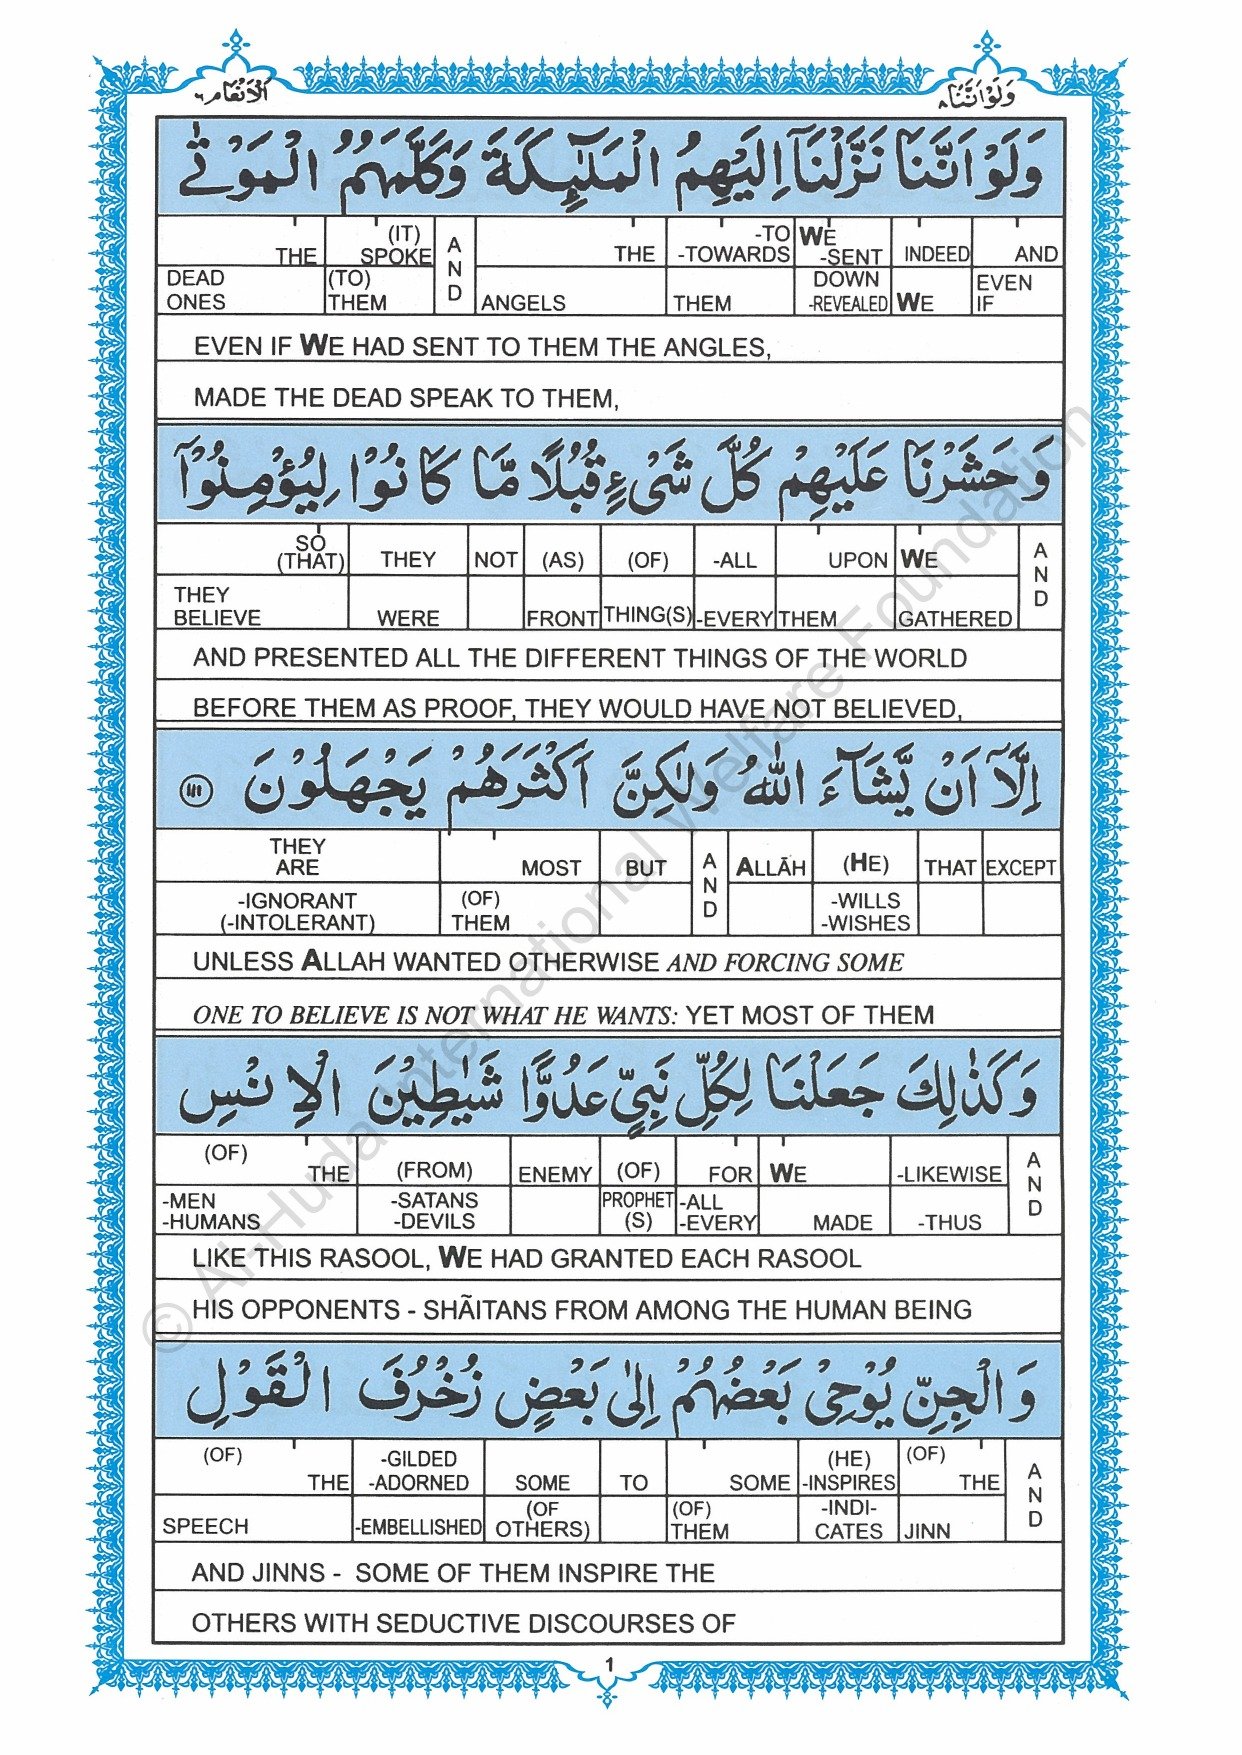 وَلَوْ اَنَّنَا ٨
اَلْاَنْعَام ٦
وَلَوْ اَنَّنَا نَزَّلْنَاۤ اِلَيْهِمُ الْمَلٰٓئِكَةَ وَكَلَّمَهُمُ الْمَوْتٰى
THE | (IT) SPOKE | AND | THE | -TO -TOWARDS | WE -SENT | INDEED | AND
DEAD ONES | (TO) THEM | ANGELS | THEM | DOWN -REVEALED | WE | EVEN IF
EVEN IF WE HAD SENT TO THEM THE ANGLES,
MADE THE DEAD SPEAK TO THEM,
وَحَشَرْنَا عَلَيْهِمْ كُلَّ شَيْءٍ قُبُلًا مَّا كَانُوْا لِيُؤْمِنُوْۤا
SO (THAT) | THEY | NOT | (AS) | (OF) | -ALL | UPON | WE | AND
THEY BELIEVE | WERE | FRONT | THING(S) | -EVERY | THEM | GATHERED
AND PRESENTED ALL THE DIFFERENT THINGS OF THE WORLD
BEFORE THEM AS PROOF, THEY WOULD HAVE NOT BELIEVED,
اِلَّاۤ اَنْ يَّشَآءَ اللّٰهُ وَلٰكِنَّ اَكْثَرَهُمْ يَجْهَلُوْنَ ١١١
THEY ARE | MOST | BUT | AND | ALLĀH | (HE) | THAT | EXCEPT
-IGNORANT (-INTOLERANT) | (OF) THEM | -WILLS -WISHES
UNLESS ALLAH WANTED OTHERWISE AND FORCING SOME
ONE TO BELIEVE IS NOT WHAT HE WANTS: YET MOST OF THEM
وَكَذٰلِكَ جَعَلْنَا لِكُلِّ نَبِيٍّ عَدُوًّا شَيٰطِيْنَ الْاِنْسِ
(OF) THE | (FROM) | ENEMY | (OF) | FOR | WE | -LIKEWISE | AND
-MEN -HUMANS | -SATANS -DEVILS | PROPHET (S) | -ALL -EVERY | MADE | -THUS
LIKE THIS RASOOL, WE HAD GRANTED EACH RASOOL
HIS OPPONENTS - SHÃITANS FROM AMONG THE HUMAN BEING
وَالْجِنِّ يُوْحِيْ بَعْضُهُمْ اِلٰى بَعْضٍ زُخْرُفَ الْقَوْلِ
(OF) THE | -GILDED -ADORNED | SOME | TO | SOME | (HE) -INSPIRES | (OF) THE | AND
SPEECH | -EMBELLISHED | (OF OTHERS) | (OF) THEM | -INDI- CATES | JINN
AND JINNS - SOME OF THEM INSPIRE THE
OTHERS WITH SEDUCTIVE DISCOURSES OF
1
© Al-Huda International Welfare Foundation